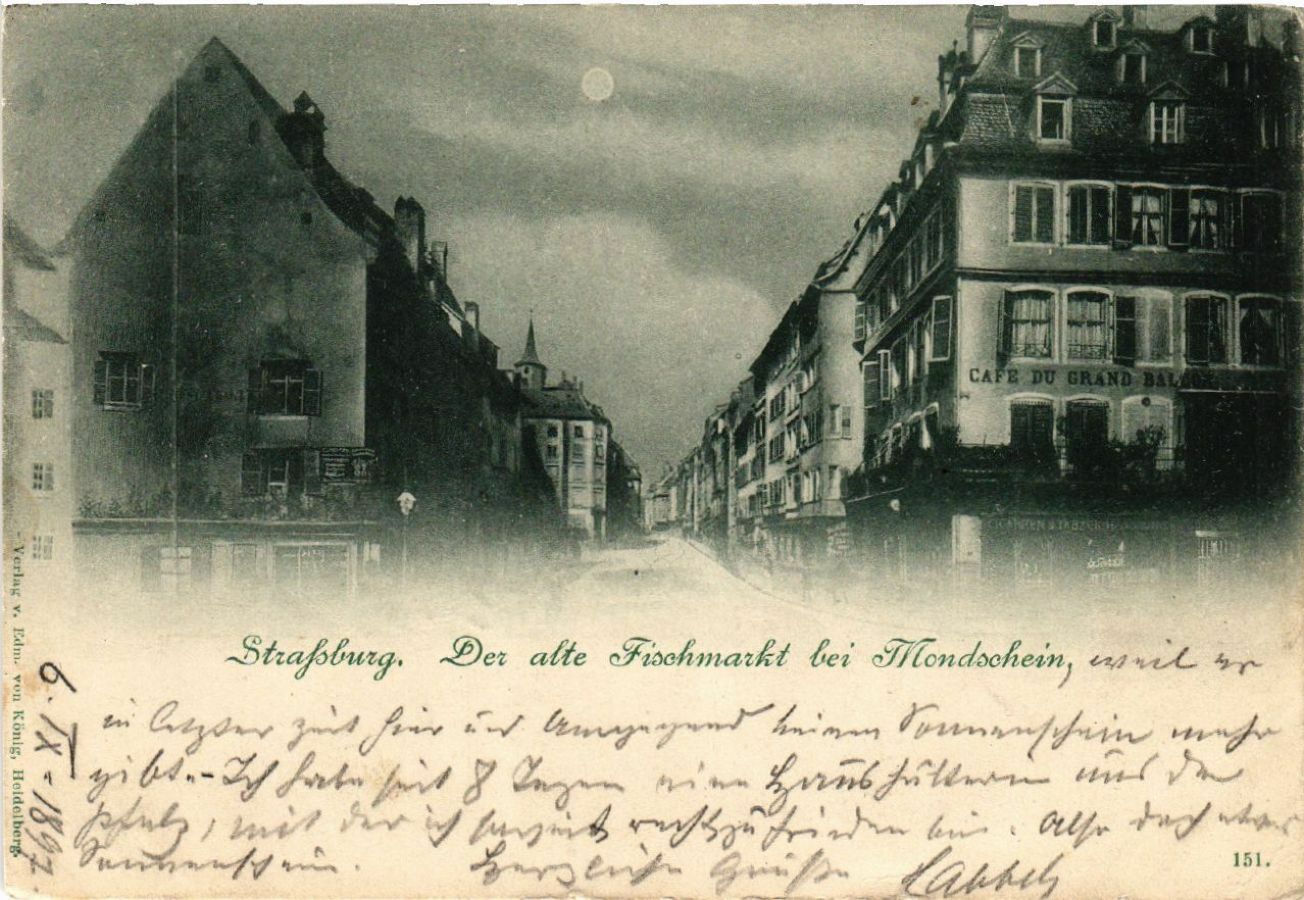 CAFE DU GRAND BAL
Straßburg. Der alte Fischmarkt bei Mondschein, weil es
in letzter Zeit hier und Umgegend keinen Sonnenschein mehr
gibt. – Ich habe seit 8 Tagen eine Haushälterin aus der
Pfalz, mit der ich recht zufrieden bin. Also doch etwas
Sonnenschein. Herzliche Grüße
6. IX – 1897
Verlag v. Edm. von König, Heidelberg.
151.